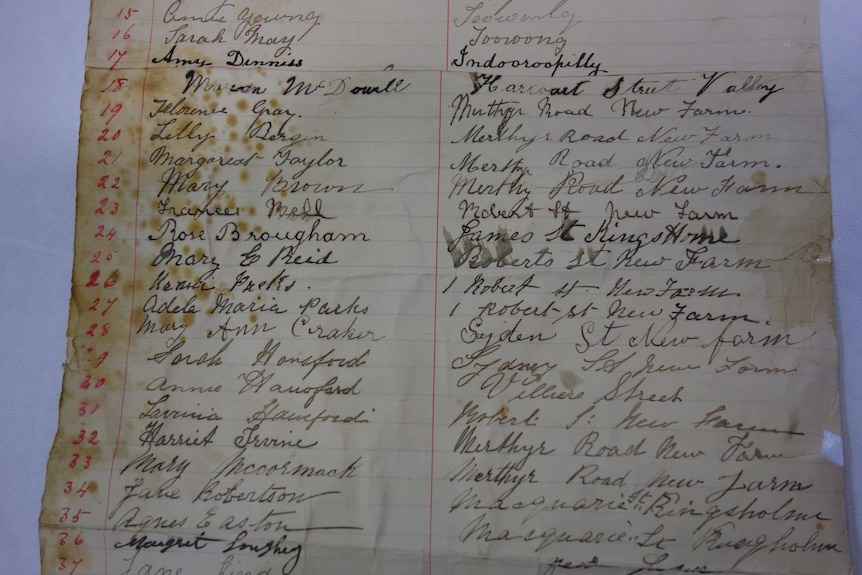 15 Annie Young Toowong
16 Sarah May Toowong
17 Amy Denniss Indooroopilly
18 McDowell Harcourt Street Valley
19 Florence Gray. Road New Farm.
20 Lilly Bergin Merthyr Road New Farm
21 Margaret Taylor Merthyr Road New Farm.
22 Mary Brown Merthy Road New Farm
23 Frances Bell Robert St New Farm
24 Rose Brougham James St Kings Home
25 Mary E Reid Roberts St New Farm
26 1 Robert st New Farm.
27 Adela Maria Parks 1 Robert st New Farm.
28 Mary Ann Craker Syden St New farm
29 Sarah Hansford Sydney St New Farm
30 Annie Villiers Street
31 Lavinia Robert St New Farm
32 Harriet Irvine Merthyr Road New Farm
33 Mary Mccormack Merthyr Road New Farm
34 Jane Robertson Macquarie St Kingsholme
35 Agnes Easton Macquarie St
36 Margret New Farm
37 Jane